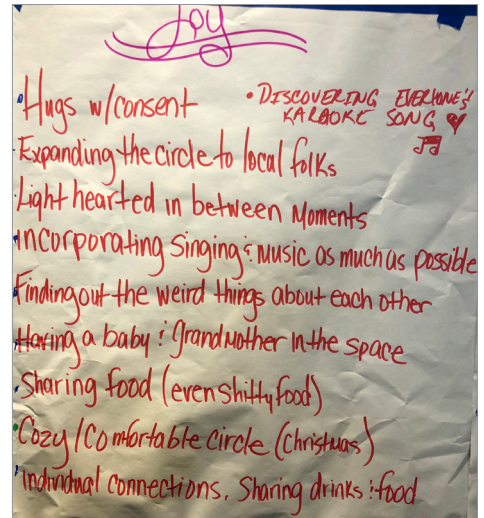 Joy
• Hugs w/consent
• DISCOVERING EVERYONE'S
KARAOKE SONG ♥
♫
• Expanding the circle to local folks
• Light hearted in between Moments
• Incorporating Singing & Music as much as possible
• Finding out the weird things about each other
• Having a baby & Grandmother in the space
• Sharing food (even shitty food)
• Cozy/Comfortable circle (Christmas)
• Individual connections, Sharing drinks & food